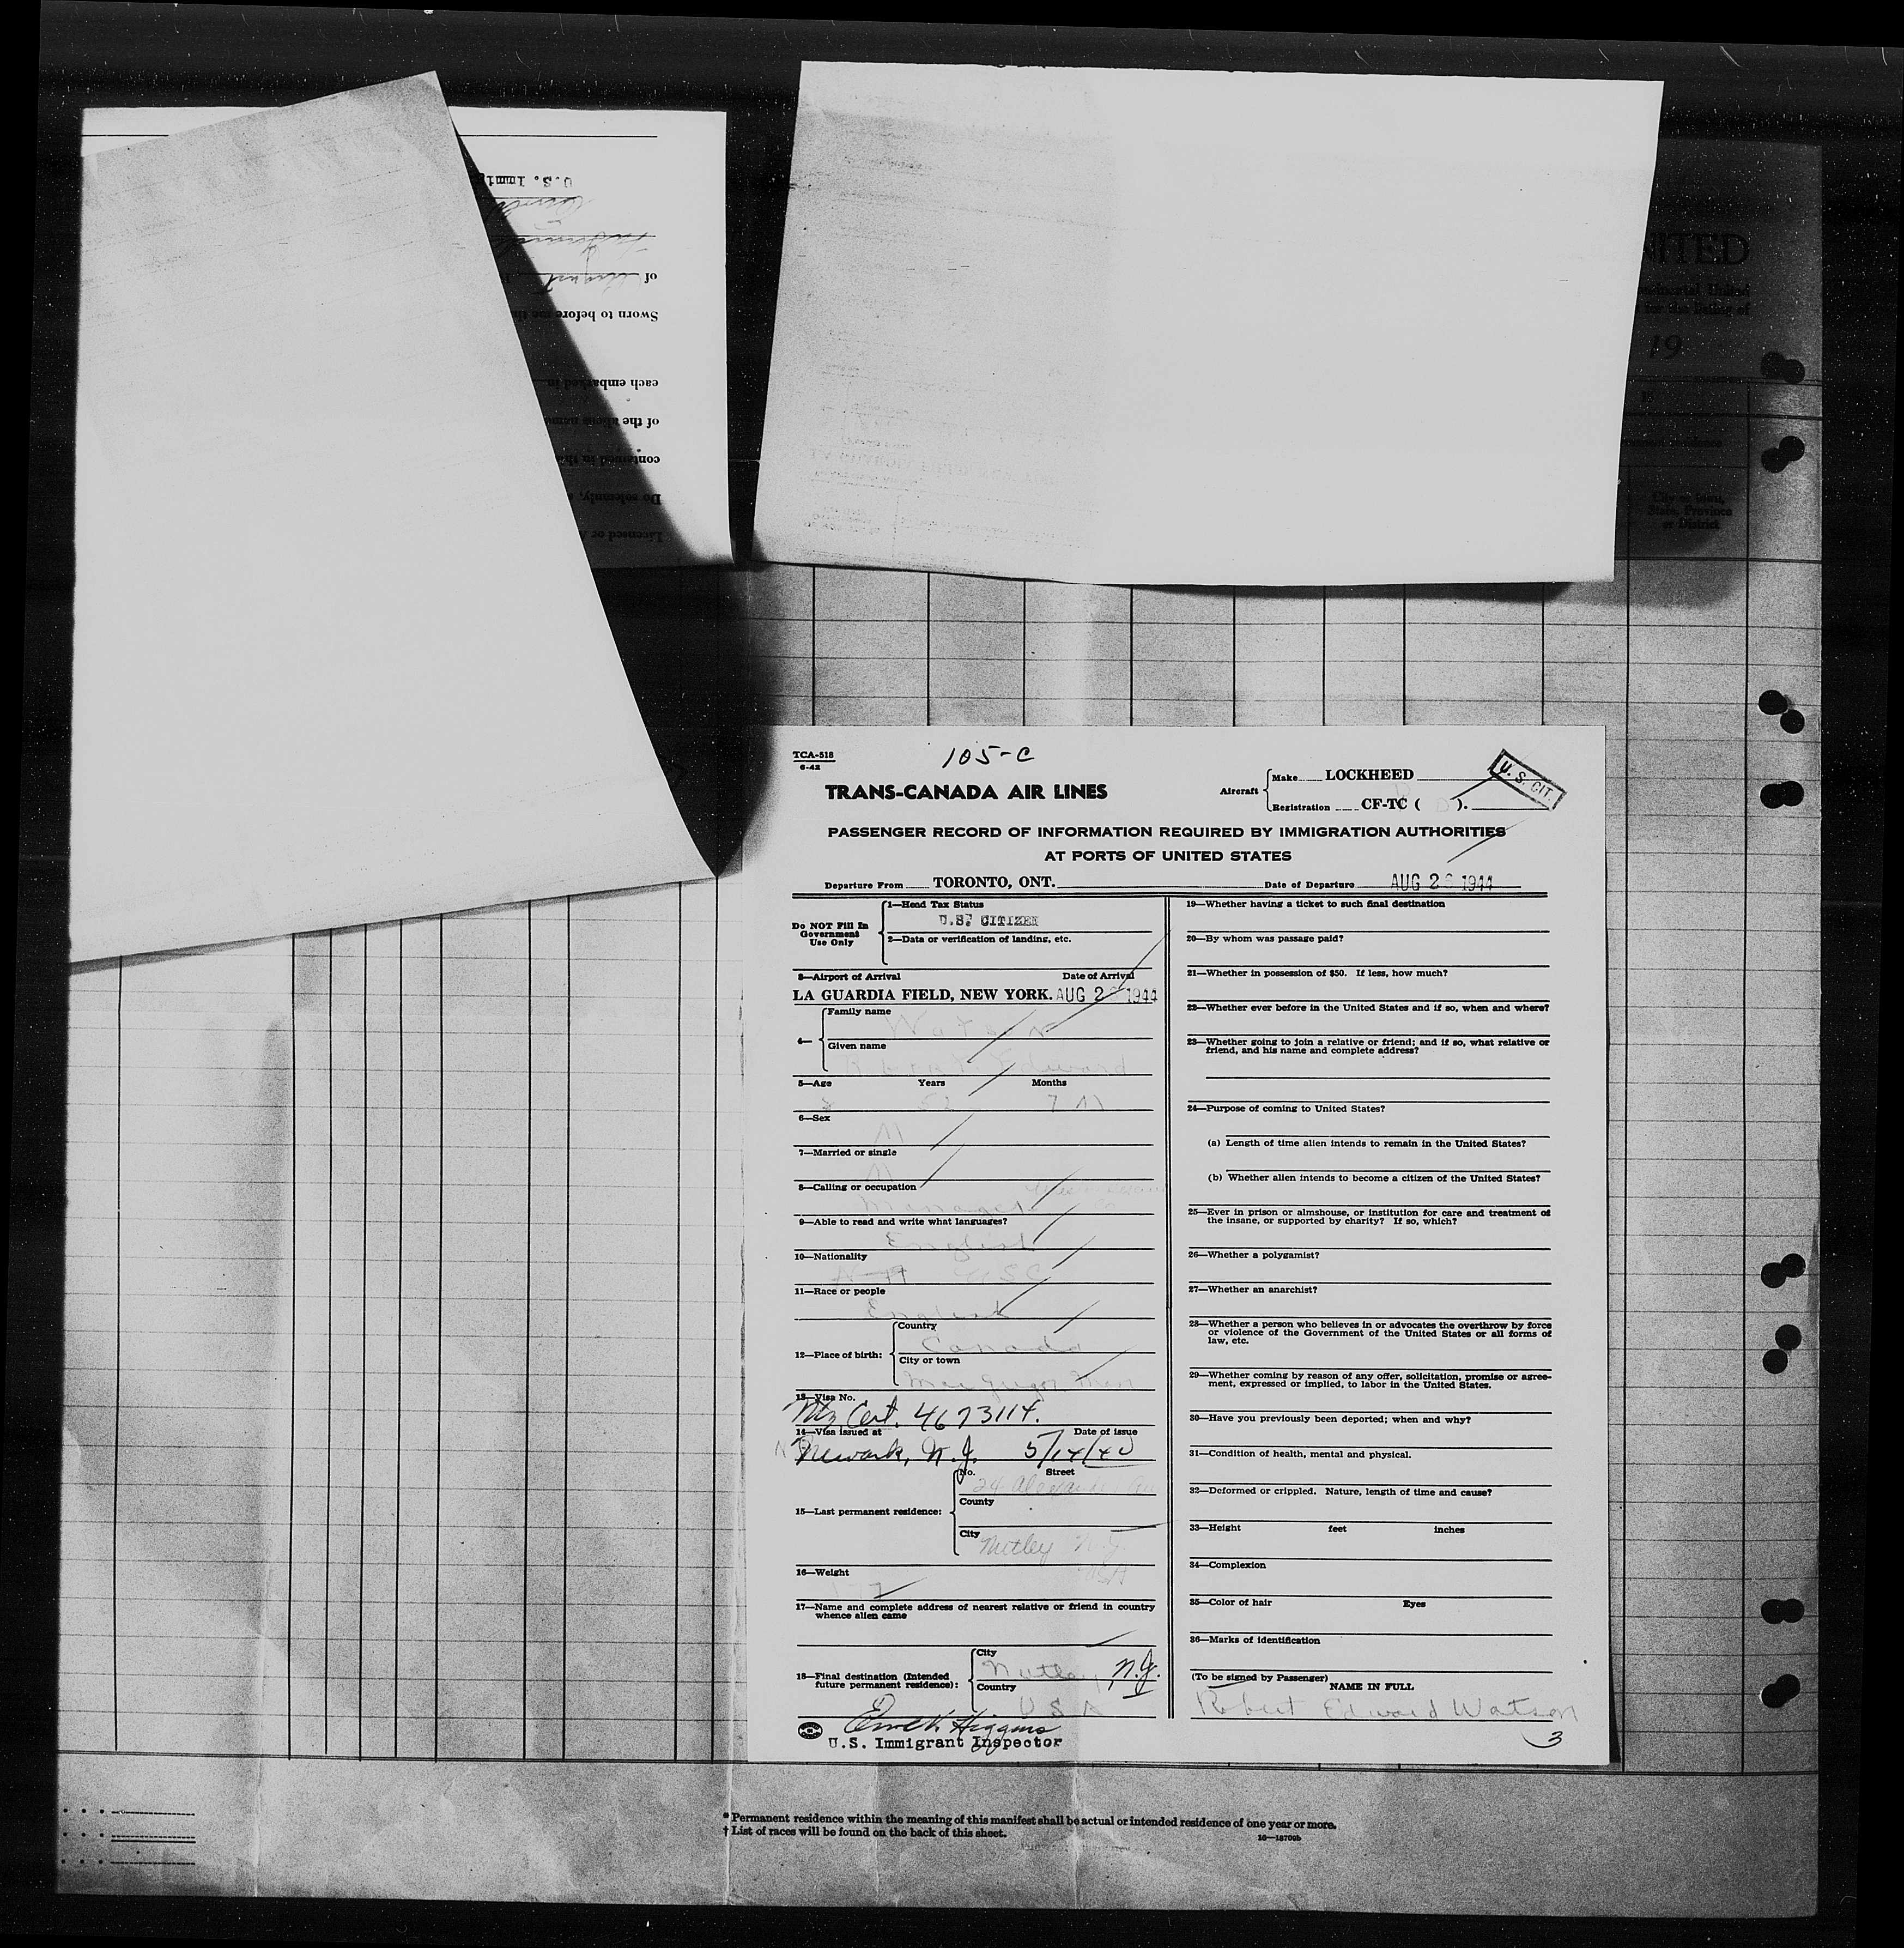 U.S. Immig
of August
Sworn to before me th
each embarked in
of the above name
contained in thi
Do solemnly,
Licensed or
NITED
19
City or town,
State, Province
or District
TCA-518
6-42
105-C
TRANS-CANADA AIR LINES
Aircraft
Make LOCKHEED
Registration CF-TC ( ).
U. S. CIT.
PASSENGER RECORD OF INFORMATION REQUIRED BY IMMIGRATION AUTHORITIES
AT PORTS OF UNITED STATES
Departure From TORONTO, ONT.
Date of Departure AUG 2 1944
Do NOT Fill In
Government
Use Only
1—Head Tax Status
U.S. CITIZEN
2—Data or verification of landing, etc.
3—Airport of Arrival Date of Arrival
LA GUARDIA FIELD, NEW YORK. AUG 2 1944
4—
Family name
Watson
Given name
Robert Edward
5—Age Years Months
52 7
6—Sex
M
7—Married or single
M
8—Calling or occupation
Manager
9—Able to read and write what languages?
English
10—Nationality
USC
11—Race or people
English
12—Place of birth:
Country
Canada
City or town
MacGregor Man
13—Visa No.
Ntz Cert. 4673114.
14—Visa issued at Date of issue
Newark, N.J. 5/14/40
15—Last permanent residence:
No. Street
24
County
City
Nutley N.J.
USA
16—Weight
17—Name and complete address of nearest relative or friend in country
whence alien came
18—Final destination (Intended
future permanent residence):
City
Nutley, N.J.
Country
USA
Higgins
U.S. Immigrant Inspector
19—Whether having a ticket to such final destination
20—By whom was passage paid?
21—Whether in possession of $50. If less, how much?
22—Whether ever before in the United States and if so, when and where?
23—Whether going to join a relative or friend; and if so, what relative or
friend, and his name and complete address?
24—Purpose of coming to United States?
(a) Length of time alien intends to remain in the United States?
(b) Whether alien intends to become a citizen of the United States?
25—Ever in prison or almshouse, or institution for care and treatment of
the insane, or supported by charity? If so, which?
26—Whether a polygamist?
27—Whether an anarchist?
28—Whether a person who believes in or advocates the overthrow by force
or violence of the Government of the United States or all forms of
law, etc.
29—Whether coming by reason of any offer, solicitation, promise or agree-
ment, expressed or implied, to labor in the United States.
30—Have you previously been deported; when and why?
31—Condition of health, mental and physical.
32—Deformed or crippled. Nature, length of time and cause?
33—Height feet inches
34—Complexion
35—Color of hair Eyes
36—Marks of identification
(To be signed by Passenger)
NAME IN FULL
Robert Edward Watson
3
* Permanent residence within the meaning of this manifest shall be actual or intended residence of one year or more.
† List of races will be found on the back of this sheet.
16—18706b